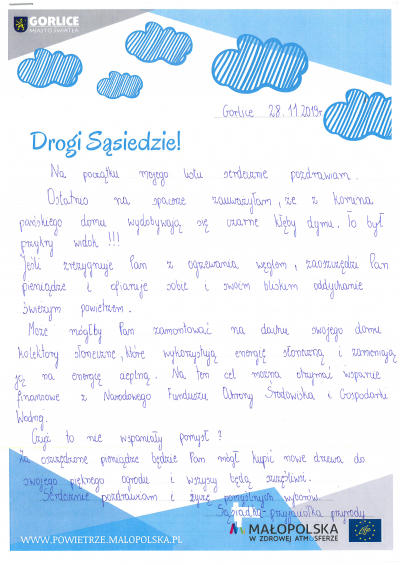 GORLICE
MIASTO ŚWIATŁA
Gorlice 28.11.2019r
Drogi Sąsiedzie!
Na początku mojego listu serdecznie pozdrawiam.
Ostatnio na spacerze zauważyłam, że z komina
pańskiego domu wydobywają się czarne kłęby dymu. To był
przykry widok !!!
Jeśli zrezygnuje Pan z ogrzewania węglem, zaoszczędzi Pan
pieniądze i ofiaruje sobie i swoim bliskim oddychanie
świeżym powietrzem.
Może mógłby Pan zamontować na dachu swojego domu
kolektory słoneczne, które wykorzystują energię słoneczną i zamieniają
ją na energię cieplną. Na ten cel można otrzymać wsparcie
finansowe z Narodowego Funduszu Ochrony Środowiska i Gospodarki
Wodnej.
Czyż to nie wspaniały pomysł ?
Za oszczędzone pieniądze będzie Pan mógł kupić nowe drzewa do
swojego pięknego ogrodu i wszyscy będą szczęśliwi.
Serdecznie pozdrawiam i życzę pomyślnych wyborów
Sąsiadka - przyjaciółka przyrody
WWW.POWIETRZE.MALOPOLSKA.PL
MAŁOPOLSKA
W ZDROWEJ ATMOSFERZE
Life